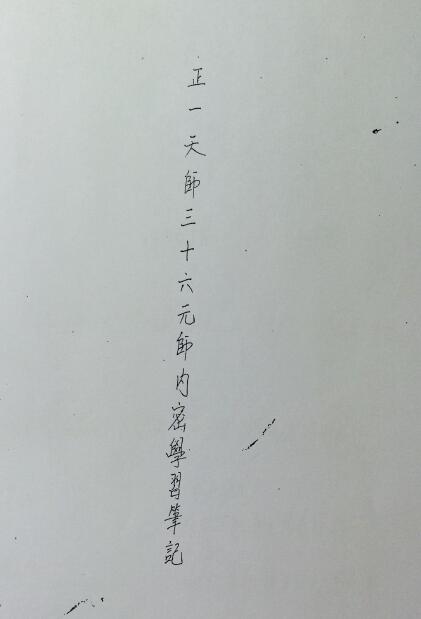 正一天師三十六元師內密學習筆記